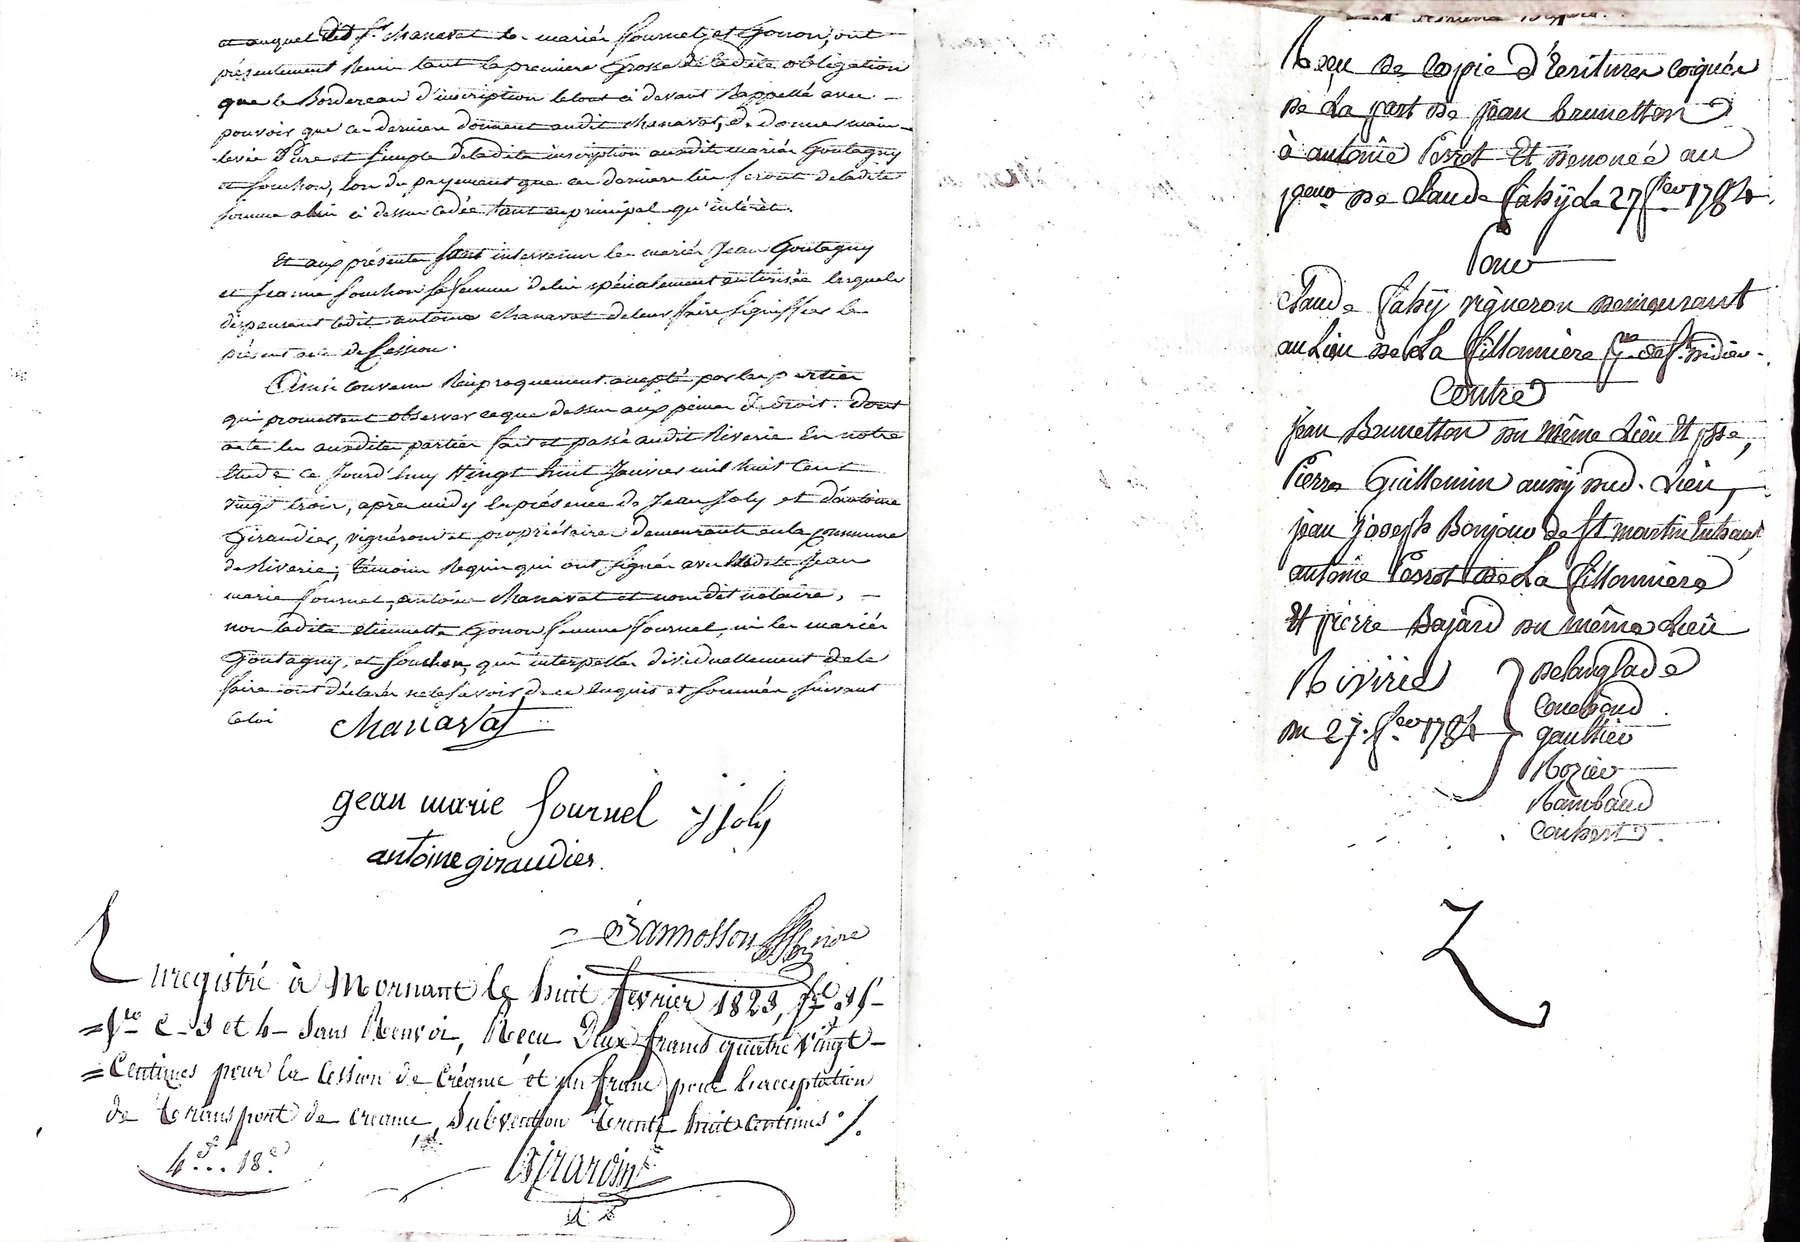 et auquel dit Sr. Chanavat les mariés fournel, et Gonon, ont
présentement Remis tant la premiere Grosse de ladite obligation
que le Bordereau d'inscription letout ci devant Rappellé avec
pouvoir que ces derniers donnent audit Chanavat, de donner main-
levée pure et simple deladite inscription auxdits mariés Goutagny
et fouchon, lors du payement que ces derniers lui feront deladite
somme alui ci dessus cédée tant en principal qu'intérêt.
Et aux présentes sont intervenus les mariés Jean Goutagny
et jeanne fouchon sa femme delui spécialement autorisée lesquels
dispensent ledit antoine Chanavat deleur faire signiffier le
présent acte de Cession.
Ainsi convenu Réciproquement accepté par les parties
qui promettent observer ceque dessus aux peines de droit. Dont
acte lu auxdites parties fait et passé audit Riverie En notre
Etude ce jourd'huy Vingt huit Janvier mil huit Cent
vingt trois, après midy En présence de Jean Joly et d'antoine
Giraudier, vignérons et propriétaires demeurants enla Commune
de Riverie, témoins Requis qui ont signés avec ledit Jean
marie fournel, antoine Chanavat et nous dit notaire,
non ladite etiennette Gonon femme fournel, ni les mariés
Goutagny, et fouchon, qui interpellés dividuellement dele
faire ont déclarés nele savoir, de ce Enquis et sommés suivant
la loi
Chanavat
jean marie fournel j joly
antoine giraudier
Bannosson nore
Enregistré à Mornant le huit fevrier 1823, fol. 35
Ro C. 3 et 4 Sans Renvoi, Recu Deux francs quatre vingt
Centimes pour la Cession de Créance et un franc pour l'acceptation
de transport de creance, Subvention trente huit Centimes ./.
4f... 18c
Girardin
Reçu de Copie d'Ecritures Coiquées
de La part de jean brunetton
à antoine Perrot Et denoncé au
preur de Claude Cahÿ de 27 fev 1784
Pour
Claude Cahÿ vigneron demeurant
au Lieu de La Fillonniere psse de St. Didier
Contre
jean Brunetton du même Lieu Et psse,
Pierre Guillemin aussy dud. Lieu,
jean joseph Bonjour de St martin Enhaut
antoine Perrot de La Fillonniere
Et pierre Bajard du même Lieu
Rivirie
du 27. fev 1784
Delanglade
Couebaud
gaultier
Rozier
Rambaud
Couhert